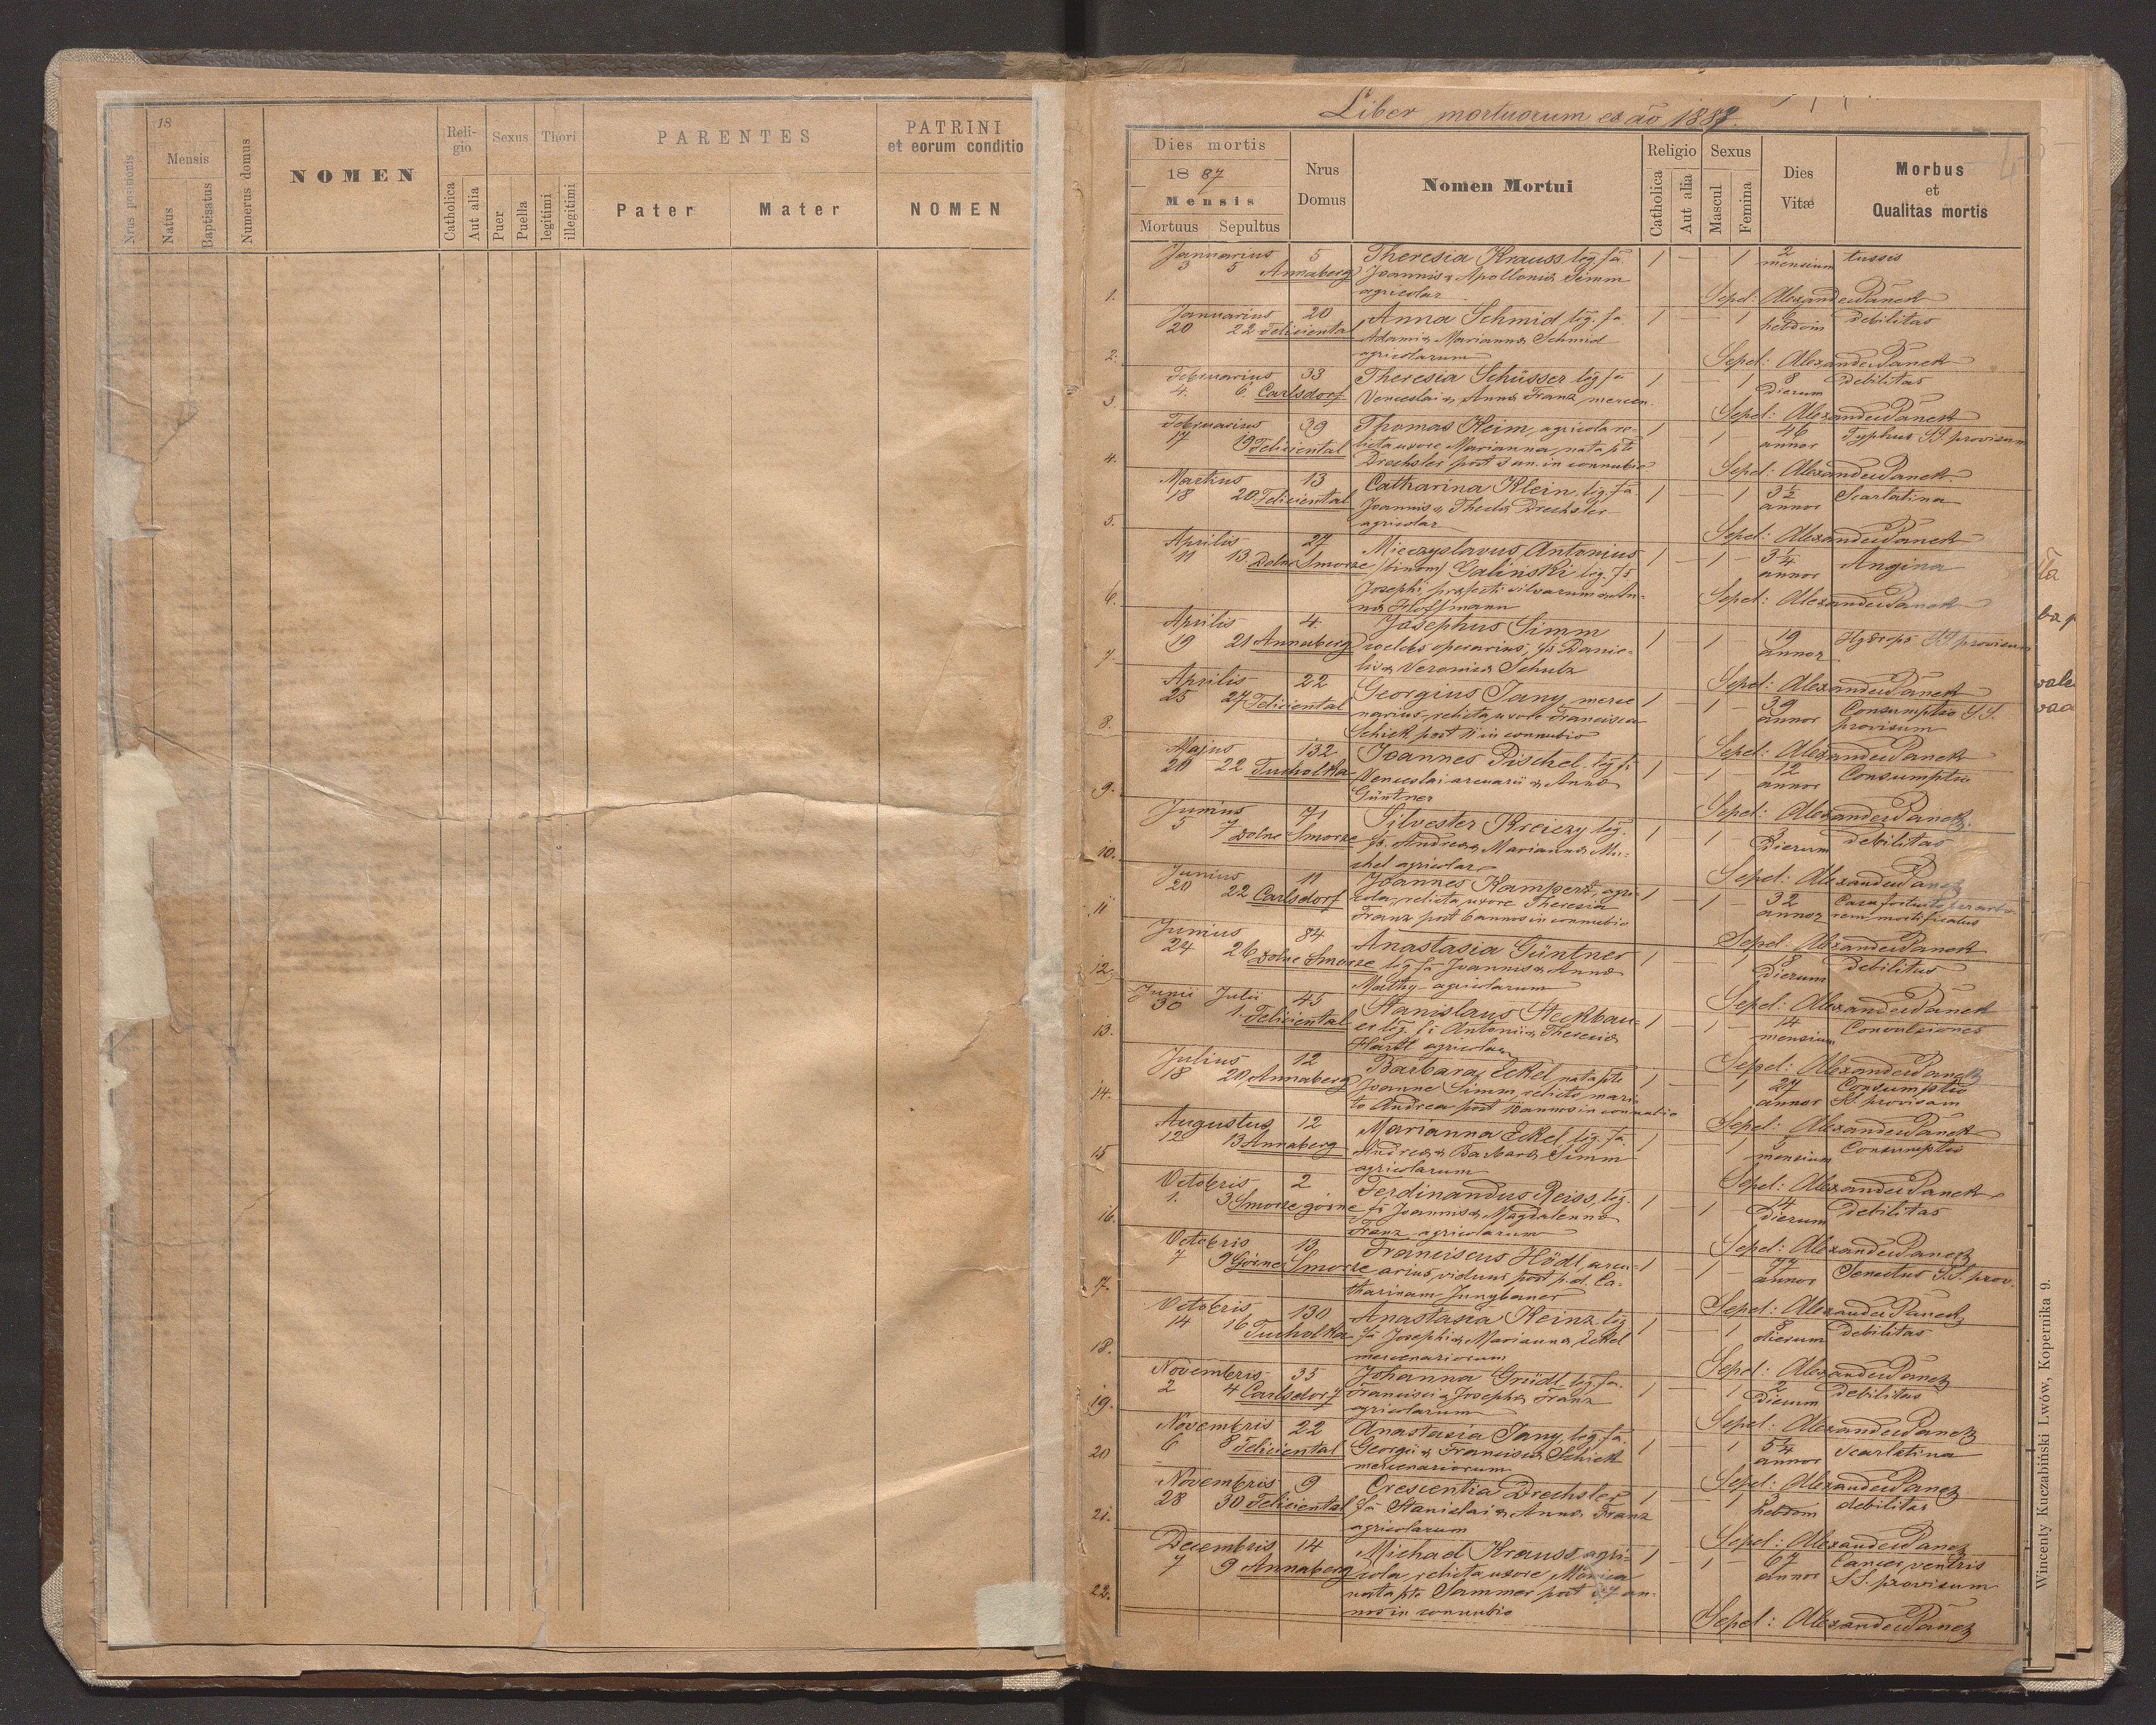 18
Mensis
Nrus posinonis
Natus
Baptisatus
Numerus domus
NOMEN
Religio
Catholica
Aut alia
Sexus
Puer
Puella
Thori
legitimi
illegitimi
PARENTES
Pater
Mater
PATRINI
et eorum conditio
NOMEN
Liber mortuorum ex ao 1887.
Dies mortis
1887
Mensis
Mortuus Sepultus
Nrus
Domus
Nomen Mortui
Religio
Catholica
Aut alia
Sexus
Mascul
Femina
Dies
Vitæ
Morbus
et
Qualitas mortis
1. Januarius 5 Theresia Krauss leg. fa 1 — 1 2 tussis
3 5 Annaberg Joannis & Apollonia Simm mensium
agricolar Sepel: Alexander Panek
2. Januarius 20 Anna Schmid leg. fa 1 — 1 debilitas
20 22 Feliciental Adami & Marianna Schmid hebdom
agricolarum Sepel: Alexander Panek
3. Februarius 33 Theresia Schüsser leg fa 1 — 1 8 debilitas
4. 6. Carlsdorf Venceslai & Anna Franz mercen. dierum
Sepel: Alexander Panek
4. Februarius 39 Thomas Heim, agricola re- 1 1 — 46 Typhus SS provisum
17 19 Feliciental licta uxore Marianna, nata pte annor
Drechsler post 3 an. in connubio Sepel: Alexander Panek.
5. Martius 13 Catharina Klein, leg. fa 1 — 1 3½ Scarlatina
18 20. Feliciental Joannis & Thecla Drechsler annor
agricolar Sepel: Alexander Panek
6. Aprilis 27 Mieczyslavus Antonius 1 — 1 — 3¼ Angina
11 13 Dolne Smorze (binom) Galinski leg. fs annor
Josephi, præfecti silvarum & An-
na Hoffmann Sepel: Alexander Panek
7. Aprilis 4. Josephus Simm 1 1 19 Hydrops SS provisum
19 21 Annaberg coelebs operarius, fs Danie- annor
lis & Veronica Schulz Sepel: Alexander Panek
8. Aprilis 22 Georgius Jany merce- 1 — 1 — 39 Consumptio SS.
25 27 Feliciental narius, relicta uxore Francisca annor provisum
Schiek post 11 in connubio Sepel: Alexander Panek
9. Majus 132 Joannes Pischel. leg fs 1 — 1 — 12 Consumptio
20 22 Tucholka Venceslai arcuarii & Anna annor
Güntner Sepel: Alexander Panek.
10. Junius 71 Silvester Kreiczy leg. 1 1 — 3 debilitas
5 7 Dolne Smorze fs. Andreas & Marianna Mi- dierum
chel agricolar Sepel: Alexander Panek
11 Junius 11 Joannes Kampert, agri- 1 — 1 — 32
20 22 Carlsdorf cola, relicta uxore Theresia annor
Franz post 6 annos in connubio Sepel: Alexander Panek
12. Junius 84 Anastasia Güntner 1 — 1 8 debilitas
24 26 Dolne Smorze leg fa Joannis & Anna dierum
Mathy agricolarum Sepel: Alexander Panek
13. Junii Julii 45 Stanislaus Steckbau- 1 — 1 — 14 Convulsiones
30 1. Feliciental er leg. fs Antonii & Theresia mensium
Hartl agricolar Sepel: Alexander Panek
14. Julius 12 Barbara Eckel nata pte 1 — 1 27 Consumptio
18 20 Annaberg Joanne Simm, relicto mari- annor SS. provisam
to Andrea post 10 annos in connubio Sepel: Alexander Panek
15 Augustus 12 Marianna Eckel, leg. fa. 1 1 Consumptio
12 13 Annaberg Andreas & Barbara Simm mensium
agricolarum Sepel: Alexander Panek
16. Octobris 2 Ferdinandus Reiss, leg. 1 — 1 14 debilitas
1. 3. Smorze górne fs Joannis & Magdalenna dierum
Franz agricolarum Sepel: Alexander Panek
17. Octobris 13 Franciscus Hödl, arcu- 1 — 1 77 Senectus S.S. prov.
7 9 Górne Smorze arius, viduus post p. d. Ca- annor
tharinam Jungbauer Sepel: Alexander Panek
18. Octobris 130 Anastasia Heinz leg 1 — 1 8 debilitas
14 16 Tucholka fa Josephi & Marianna Eckel dierum
mercenariorum Sepel: Alexander Panek
19. Novembris 35 Johanna Gridl, leg fa. 1 — 1 2 debilitas
2 4 Carlsdorf Francisci & Josepha Franz dierum
agricolarum Sepel: Alexander Panek
20 Novembris 22 Anastasia Jany, leg fa 1 1 5¼ Scarlatina
6 8 Feliciental Georgii & Francisca Schiek annor
mercenariorum Sepel: Alexander Panek
21. Novembris 9 Crescentia Drechsler 1 — 1 debilitas
28 30 Feliciental fa Stanislai & Anna Franz hebdom
agricolarum Sepel: Alexander Panek
22. Decembris 14 Michael Krauss, agri- 1 — 1 — 67 Cancer ventris
7 9 Annaberg cola, relicta uxore Monica annor SS. provisum
nata pte Sammer post 37 an-
nos in connubio Sepel: Alexander Panek
Wincenty Kuczabiński Lwów, Kopernika 9.